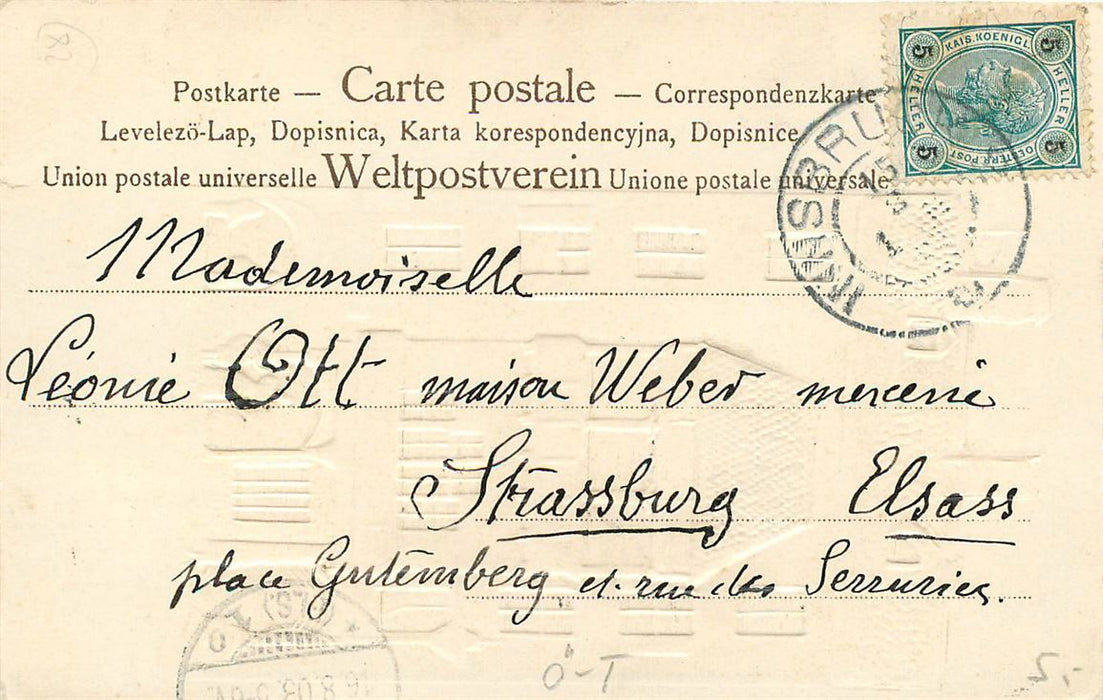 Postkarte — Carte postale — Correspondenzkarte
Levelezö-Lap, Dopisnica, Karta korespondencyjna, Dopisnice
Union postale universelle Weltpostverein Unione postale universale
KAIS. KOENIGL.
5 HELLER 5
5 HELLER 5
OESTERR. POST
INNSBRU
15
Mademoiselle
Léonie Ott maison Weber mercerie
Strassburg Elsass
place Gutemberg et rue des Serruries.
(ELS)
16.8.03
Ö-T
5,-